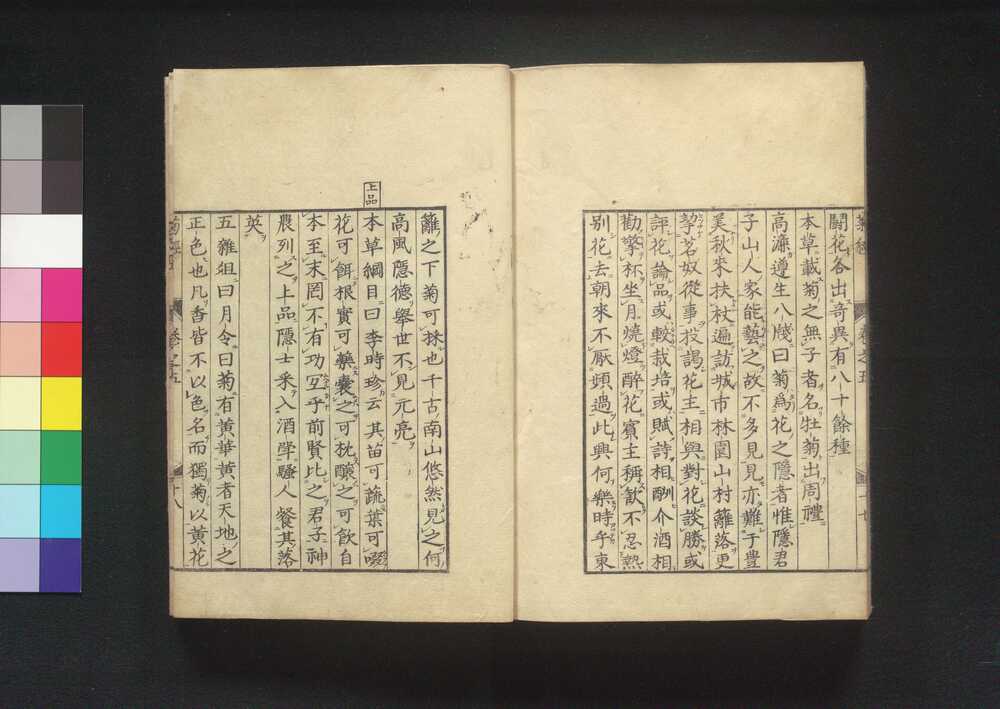 鬪花各出奇異有八十餘種
本草載菊之無子者名牡菊出周禮
高濂遵生八牋曰菊爲花之隱者惟隱君
子山人家能藝之故不多見見亦難于豊
美秋來扶杖遍訪城市林園山村籬落更
挈茗奴從事投謁花主相與對花談勝或
評花論品或較栽培或賦詩相酬介酒相
勸擎杯坐月燒燈醉花賓主稱歡不忍熟
别花去朝來不厭頻過此興何樂時乎東
籬之下菊可採也千古南山悠然見之何
高風隱德舉世不見元亮
上品
本草綱目曰李時珍云其苗可蔬葉可啜
花可餌根實可藥囊之可枕釀之可飲自
本至末罔不有功宐乎前賢比之君子神
農列之上品隱士采入酒斝騷人餐其落
英
五雜俎曰月令曰菊有黃華黄者天地之
正色也凡香皆不以色名而獨菊以黄花
卷之五
十八
卷之五
十七